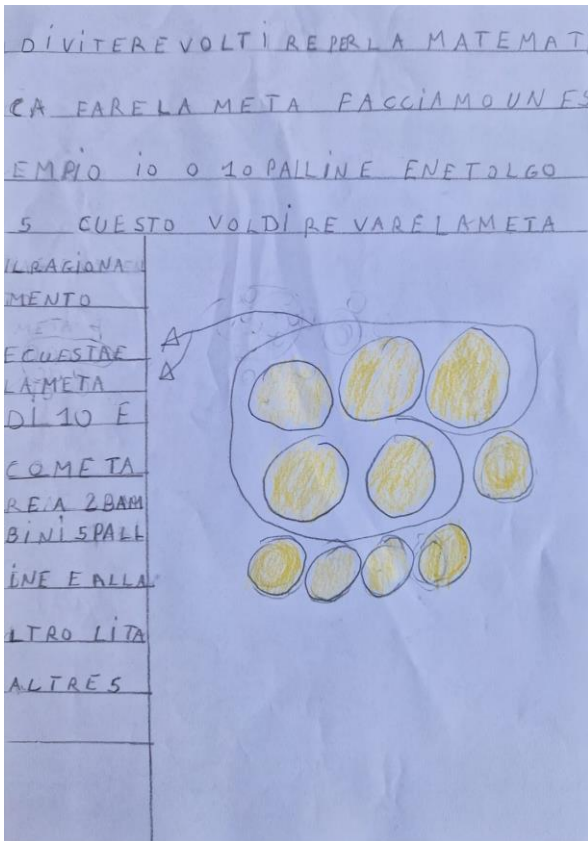 DIVITERE VOLTIRE PER LA MATEMATI
CA FARE LA META FACCIAMO UN ES
EMPIO IO O 10 PALLINE ENE TOLGO
5 CUESTO VOLDIRE VARE LA META
IL RAGIONA
MENTO
E CUESTAE
LA META
DI 10 E
COME TA
RE A 2 BAM
BINI 5 PALL
INE E ALLA
LTRO LI TA
ALTRE 5